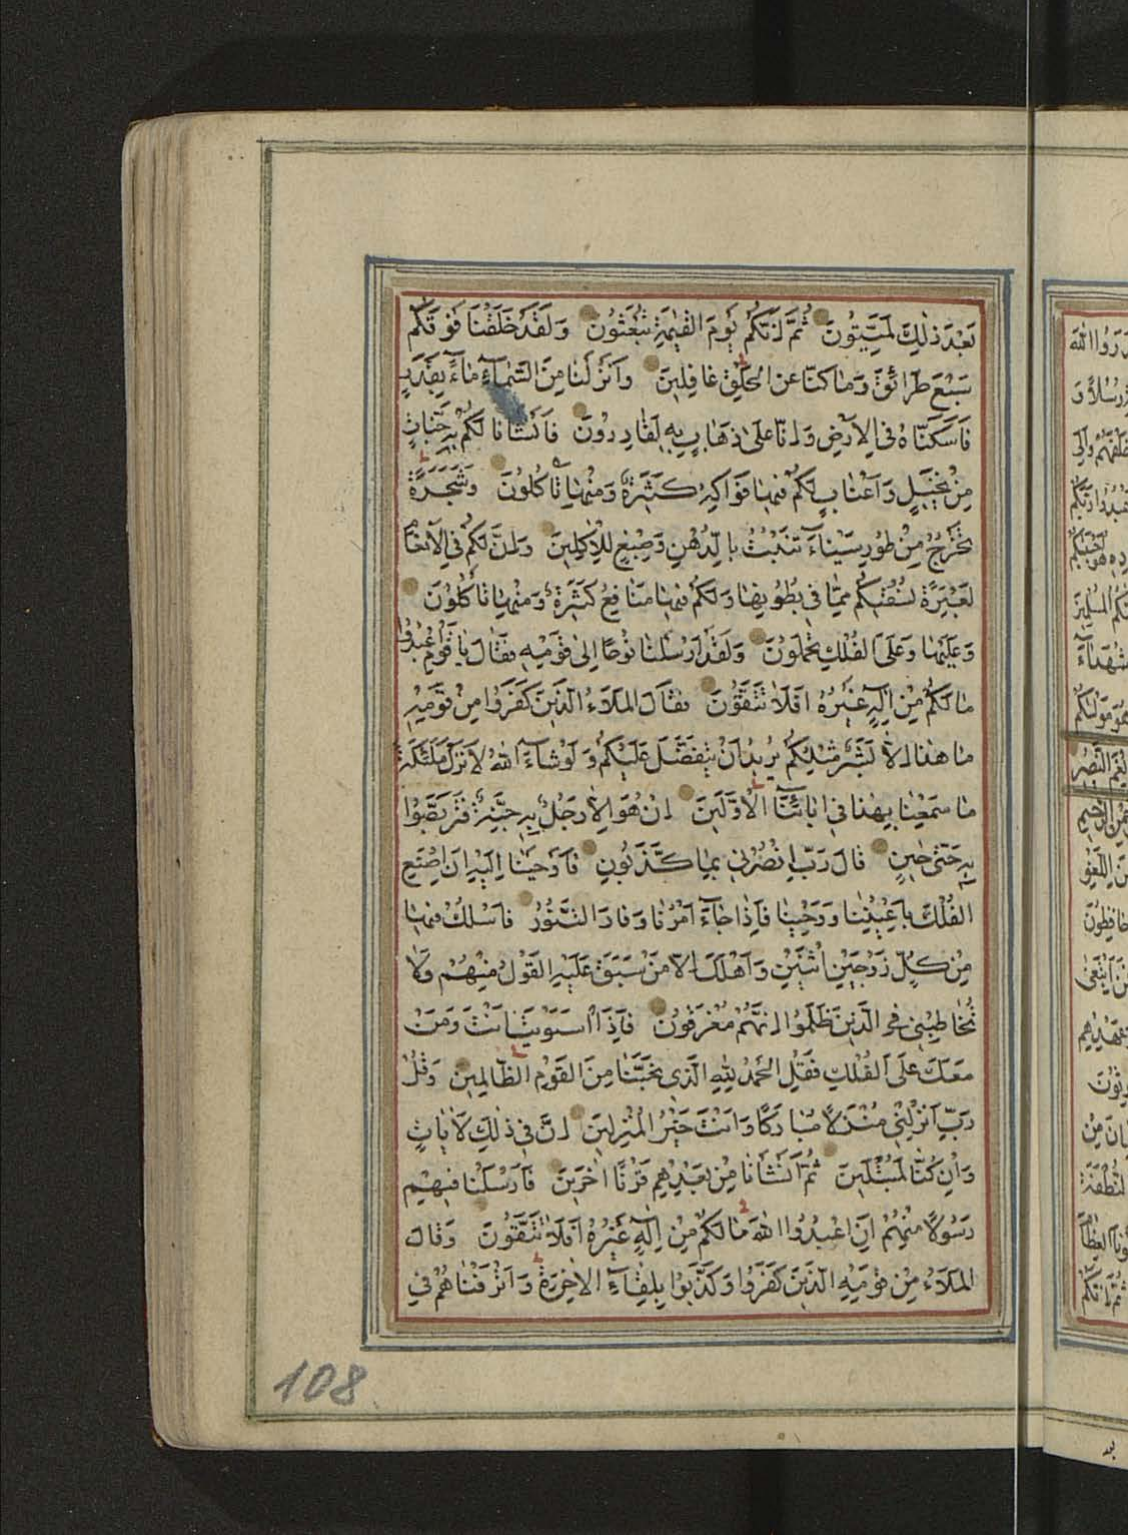 بَعْدَ ذٰلِكَ لَمَيِّتُونَ ثُمَّ اِنَّكُمْ يَوْمَ الْقِيٰمَةِ تُبْعَثُونَ وَلَقَدْ خَلَقْنَا فَوْقَكُمْ
سَبْعَ طَرَائِقَ وَمَا كُنَّا عَنِ الْخَلْقِ غَافِلِينَ وَاَنْزَلْنَا مِنَ السَّمَاءِ مَاءً بِقَدَرٍ
فَاَسْكَنَّاهُ فِي الْاَرْضِ وَاِنَّا عَلٰى ذَهَابٍ بِهِ لَقَادِرُونَ فَاَنْشَاْنَا لَكُمْ بِهِ جَنَّاتٍ
مِنْ نَخِيلٍ وَاَعْنَابٍ لَكُمْ فِيهَا فَوَاكِهُ كَثِيرَةٌ وَمِنْهَا تَاْكُلُونَ وَشَجَرَةً
تَخْرُجُ مِنْ طُورِ سَيْنَاءَ تَنْبُتُ بِالدُّهْنِ وَصِبْغٍ لِلْاٰكِلِينَ وَاِنَّ لَكُمْ فِي الْاَنْعَامِ
لَعِبْرَةً نُسْقِيكُمْ مِمَّا فِي بُطُونِهَا وَلَكُمْ فِيهَا مَنَافِعُ كَثِيرَةٌ وَمِنْهَا تَاْكُلُونَ
وَعَلَيْهَا وَعَلَى الْفُلْكِ تُحْمَلُونَ وَلَقَدْ اَرْسَلْنَا نُوحًا اِلٰى قَوْمِهِ فَقَالَ يَا قَوْمِ اعْبُدُوا
مَا لَكُمْ مِنْ اِلٰهٍ غَيْرُهُ اَفَلَا تَتَّقُونَ فَقَالَ الْمَلَاءُ الَّذِينَ كَفَرُوا مِنْ قَوْمِهِ
مَا هٰذَا اِلَّا بَشَرٌ مِثْلُكُمْ يُرِيدُ اَنْ يَتَفَضَّلَ عَلَيْكُمْ وَلَوْ شَاءَ اللّٰهُ لَاَنْزَلَ مَلٰئِكَةً
مَا سَمِعْنَا بِهٰذَا فِي اٰبَائِنَا الْاَوَّلِينَ اِنْ هُوَ اِلَّا رَجُلٌ بِهِ جِنَّةٌ فَتَرَبَّصُوا
بِهِ حَتّٰى حِينٍ قَالَ رَبِّ انْصُرْنِي بِمَا كَذَّبُونِ فَاَوْحَيْنَا اِلَيْهِ اَنِ اصْنَعِ
الْفُلْكَ بِاَعْيُنِنَا وَوَحْيِنَا فَاِذَا جَاءَ اَمْرُنَا وَفَارَ التَّنُّورُ فَاسْلُكْ فِيهَا
مِنْ كُلٍّ زَوْجَيْنِ اثْنَيْنِ وَاَهْلَكَ اِلَّا مَنْ سَبَقَ عَلَيْهِ الْقَوْلُ مِنْهُمْ وَلَا
تُخَاطِبْنِي فِي الَّذِينَ ظَلَمُوا اِنَّهُمْ مُغْرَقُونَ فَاِذَا اسْتَوَيْتَ اَنْتَ وَمَنْ
مَعَكَ عَلَى الْفُلْكِ فَقُلِ الْحَمْدُ لِلّٰهِ الَّذِي نَجّٰنَا مِنَ الْقَوْمِ الظَّالِمِينَ وَقُلْ
رَبِّ اَنْزِلْنِي مُنْزَلًا مُبَارَكًا وَاَنْتَ خَيْرُ الْمُنْزِلِينَ اِنَّ فِي ذٰلِكَ لَاٰيَاتٍ
وَاِنْ كُنَّا لَمُبْتَلِينَ ثُمَّ اَنْشَاْنَا مِنْ بَعْدِهِمْ قَرْنًا اٰخَرِينَ فَاَرْسَلْنَا فِيهِمْ
رَسُولًا مِنْهُمْ اَنِ اعْبُدُوا اللّٰهَ مَا لَكُمْ مِنْ اِلٰهٍ غَيْرُهُ اَفَلَا تَتَّقُونَ وَقَالَ
الْمَلَاءُ مِنْ قَوْمِهِ الَّذِينَ كَفَرُوا وَكَذَّبُوا بِلِقَاءِ الْاٰخِرَةِ وَاَتْرَفْنَاهُمْ فِي
108